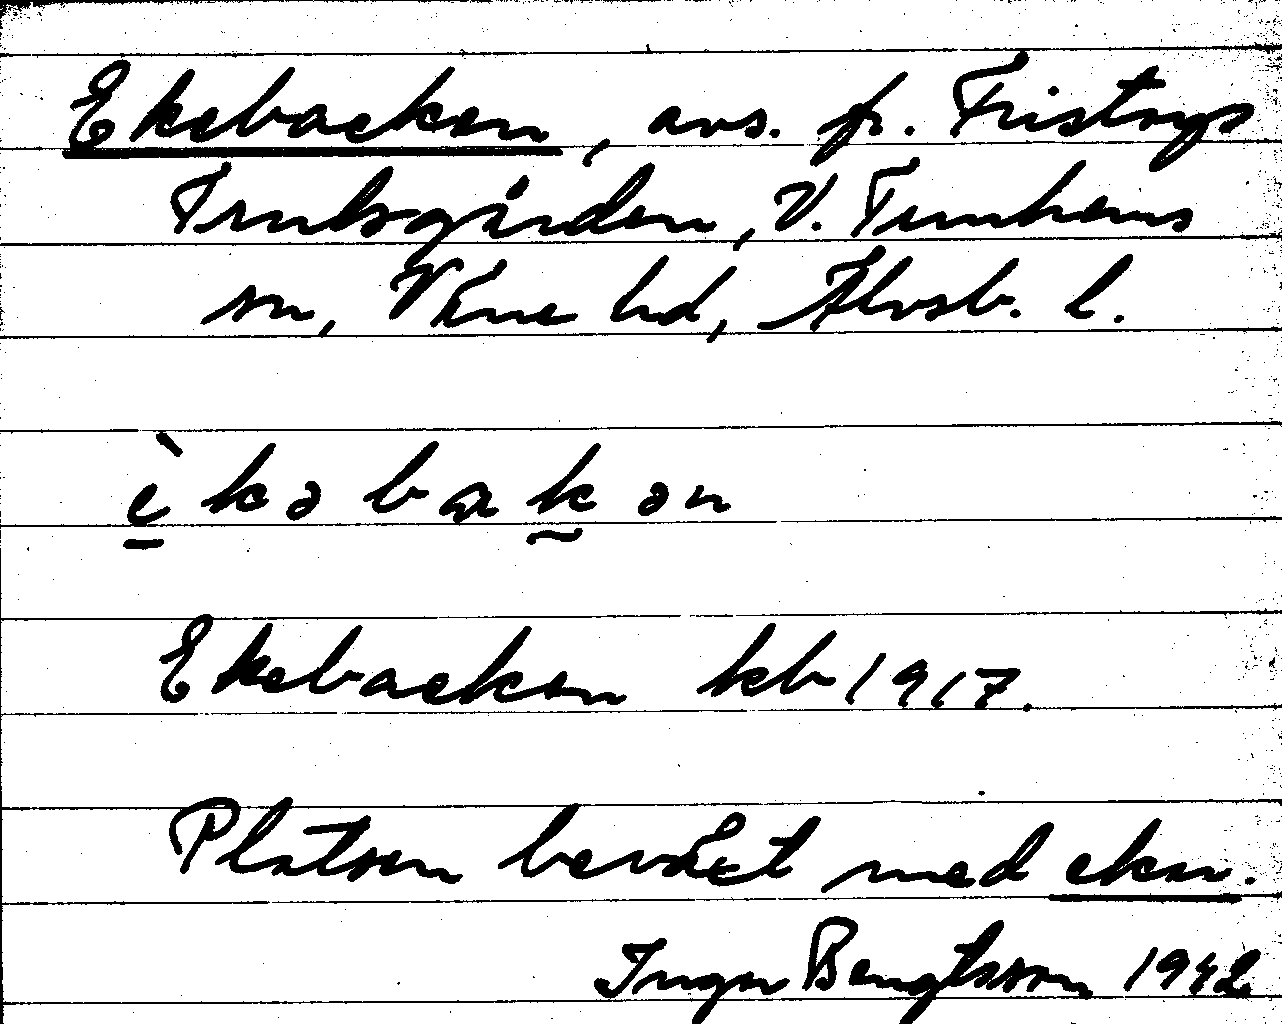 Ekebacken, avs. fr. Fristorp
Trulsgården, V. Tunhems
sn, Väne hd, Älvsb. l.
èkəbakən
Ekebacken kb 1917.
Platsen beväxt med ekar.
Inga Bengtsson 1942